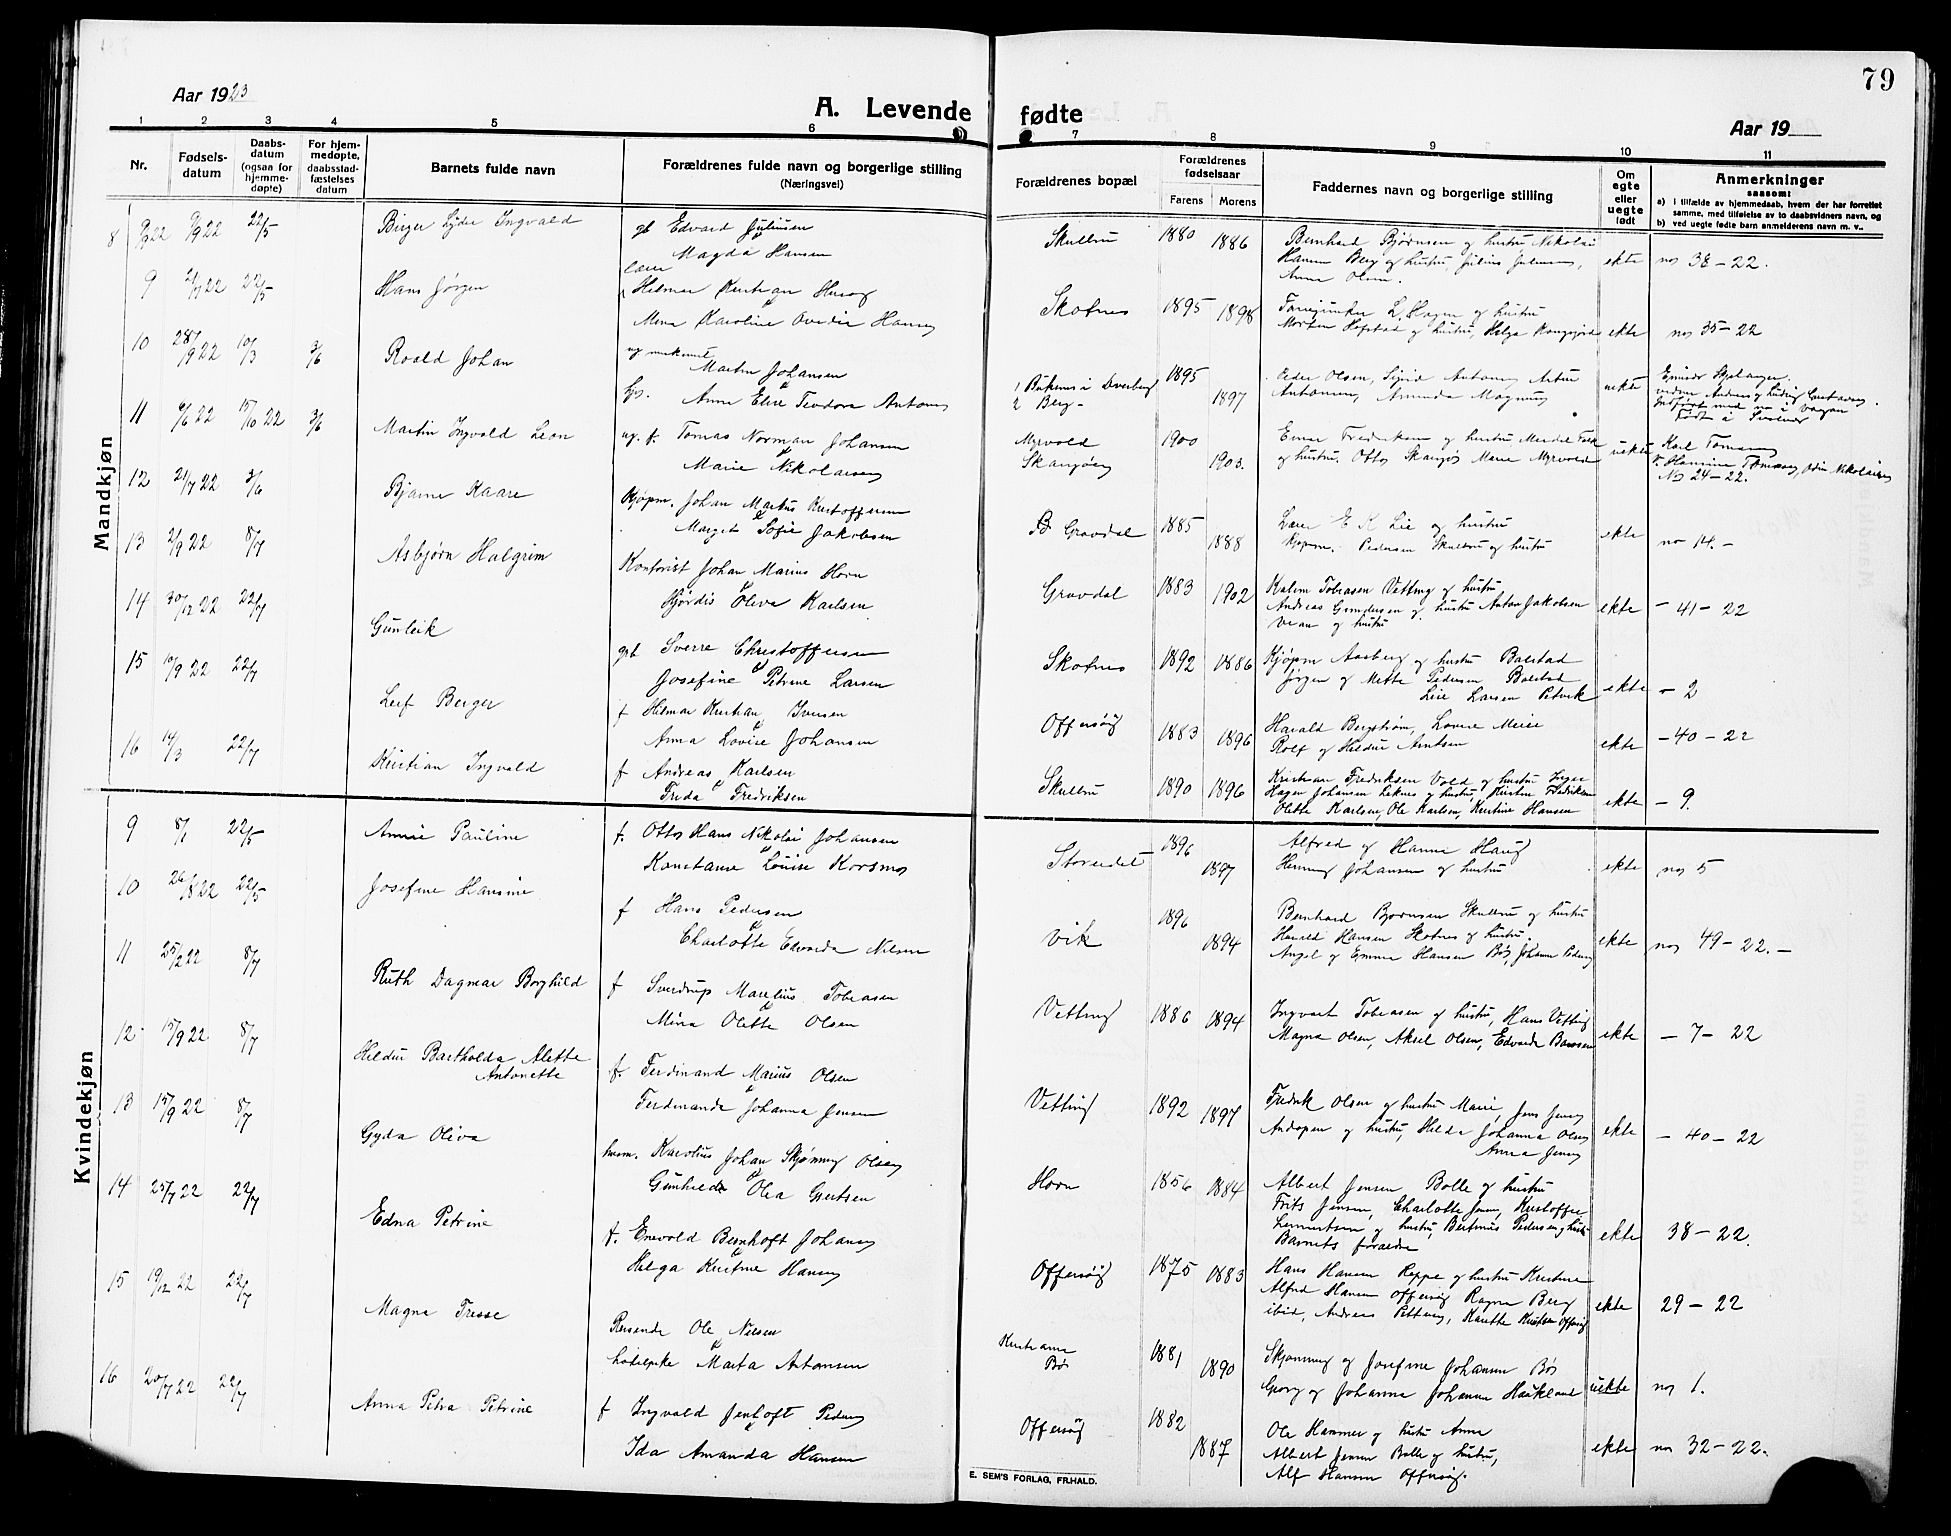 79
Aar 1923
A. Levende fødte
Aar 19
1 2 3 4 5 6 7 8 9 10 11
Nr.
Fødsels-
datum
Daabs-
datum
(ogsaa for
hjemme-
døpte)
For hjem-
medøpte,
daabsstad-
fæstelses
datum
Barnets fulde navn
Forældrenes fulde navn og borgerlige stilling
(Næringsvei)
Forældrenes bopæl
Forældrenes
fødselsaar
Farens Morens
Faddernes navn og borgerlige stilling
Om
egte
eller
uegte
født
Anmerkninger
saasomt
a) i tilfælde av hjemmedaab, hvem der har forrettet
samme, med tilføielse av to daabsvidners navn, og
b) ved uegte fødte barn anmelderens navn m. v..
Mandkjøn
8 22/5 Birger Lyder Ingvald
gb Edvard Juliussen
Magda Hansen
Skullbru 1880 1886
Bernhard Bjørnsen og hustru Nikolai
Hansen Berg og hustru, Julius Juliussen,
Anna Olsen.
ekte no 38-22.
9 2/7 22 22/5 Hans Jørgen
Hilmar Kristian
Mina Karoline Ovedie Hansen
Skotnes 1895 1898
L. Hagen og hustru
Morten Hofstad og hustru, Helga
ekte no 35-22
10 10/3 3/6 Roald Johan
Martin Johansen
Anna Elise Teodora Antons
1895 1897
Berg -
Peder Olsen, Sigrid Antons, Artur
Antonsen, Amanda Magnus
uekte
11 6/6 22 15/10 22 3/6 Martin Ingvald Leon
ug. f. Tomas Norman Johansen
Marie Nikolaisen
Myrvold
Skangøen
1900 1903.
Einar Fredriksen og hustru
og hustru. Otto Skangøs Marie Myrvold
uekte Karl Tomasen
No 24-22.
12 21/7 22 3/6 Bjarne Kaare
Kjøpm. Johan Markus Kristoffersen
Marget Sofie Jakobsen
Gravdal 1885 1888
Lærer E K Lie og hustru
Kjøpm. Pedersen Skullbru og hustru
ekte no 14.-
13 2/9 22 8/7 Asbjørn Halgrim
Kontorist Johan Marius Horn
Hjørdis Oliva Karlsen
Gravdal 1883 1902
Kalem Tobiasen Vetting og hustru
Andreas Gundersen og hustru Anton Jakobsen
og hustru
ekte - 41-22
14 30/12 22 22/7 Gunleik
gb Sverre Christoffersen
Josefine Petrine Larsen
Skotnes 1892 1886
Kjøpm Aasberg og hustru Balstad
Jørgen og Mette Pedersen Balstad
Lise Larsen Petvik
ekte - 2
15 10/9 22 22/7 Leif Berger
f Hilmar Kristian Iversen
Anna Lovise Johansen
Offersøy 1883 1896
Harald Bergstrøm, Lovise Meier
Rolf og Hildur Arntsen
ekte - 40-22
16 14/3 22/7 Kristian Ingvald
f Andreas Karlsen
Frida Fredriksen
Skullbru 1890 1896
Kristian Fredriksen Vold og hustru Inger
Hagen Johansen Leknes og hustru Kristine Fredriksen
Olette Karlsen, Ole Karlsen, Kristine Hansen
ekte - 9.
Kvindekjøn
9 8/1 22/5 Annie Pauline
f. Otto Hans Nikolai Johansen
Konstanse Louise Korsmo
Storeidet 1896 1897
Alfred og Hanna Haug
Henning Johansen og hustru
ekte no 5
10 26/8 22 22/5 Josefine Hansine
f Hans Pedersen
Charlotte Edvarda Nilsen
Vik 1896 1894
Bernhard Bjørnsen Skullbru og hustru
Harald Hansen Skotnes og hustru.
Angel og Emma Hansen Bø, Johanne Peders
ekte no 49-22.-
11 25/2 22 8/7 Ruth Dagmar Borghild
f Sverdrup Marelius Tobiasen
Mina Olette Olsen
Vetting 1886 1894
Ingvart Tobiasen og hustru, Hans Vetting
Magna Olsen, Aksel Olsen, Edvarda Bansen
ekte - 7-22
12 15/9 22 8/7 Hildur Bartholda Alette
Antonette
f. Ferdinand Marius Olsen
Ferdinanda Johanna Jensen
Vetting 1892 1897
Fredrik Olsen og hustru Marie, Jens Jensen
og hustru, Hilda Johanna Olsen
Anna Jensen
ekte - 40-22
13 15/9 22 8/7 Gyda Oliva
husm. Karolius Johan Skjønning Olsen
Gunhild Olea Gjertsen
Horn 1856 1884
Albert Jensen Bolle og hustru
Frits Jensen, Charlotte Jensen, Kristoffer
Lennertsen og hustru, Bertinus Pedersen og hustru
Barnets foreldre
ekte 38-22.
14 25/7 22 22/7 Edna Petrine
f. Enevold Bernhoft Johansen
Helga Kristine Hansen
Offersøy 1875 1883
Hans Hansen Reppe og hustru Kristine
Alfred Hansen Offersøy Ragna Berg
ibid, Andreas Pettersen, Karette Knutsen Offersøy
ekte 29-22
15 19/12 22 22/7 Magna Tresse
Reisende Ole Nilsen
Marta Antonsen
Bø
1881 1890
Skjønning og Josefine Johansen Bø
Georg og Johanna Johansen Haukland
uekte no 1.
16 20/7 22 22/7 Anna Petra Petrine
f Ingvald Jentoft Peders
Ida Amanda Hansen
Offersøy 1882 1887
Ole Hammer og hustru Anna
Albert Jensen Bolle og hustru,
Alf Hansen Offersøy.
ekte no 32-22.
E. SEM'S FORLAG, FR.HALD.